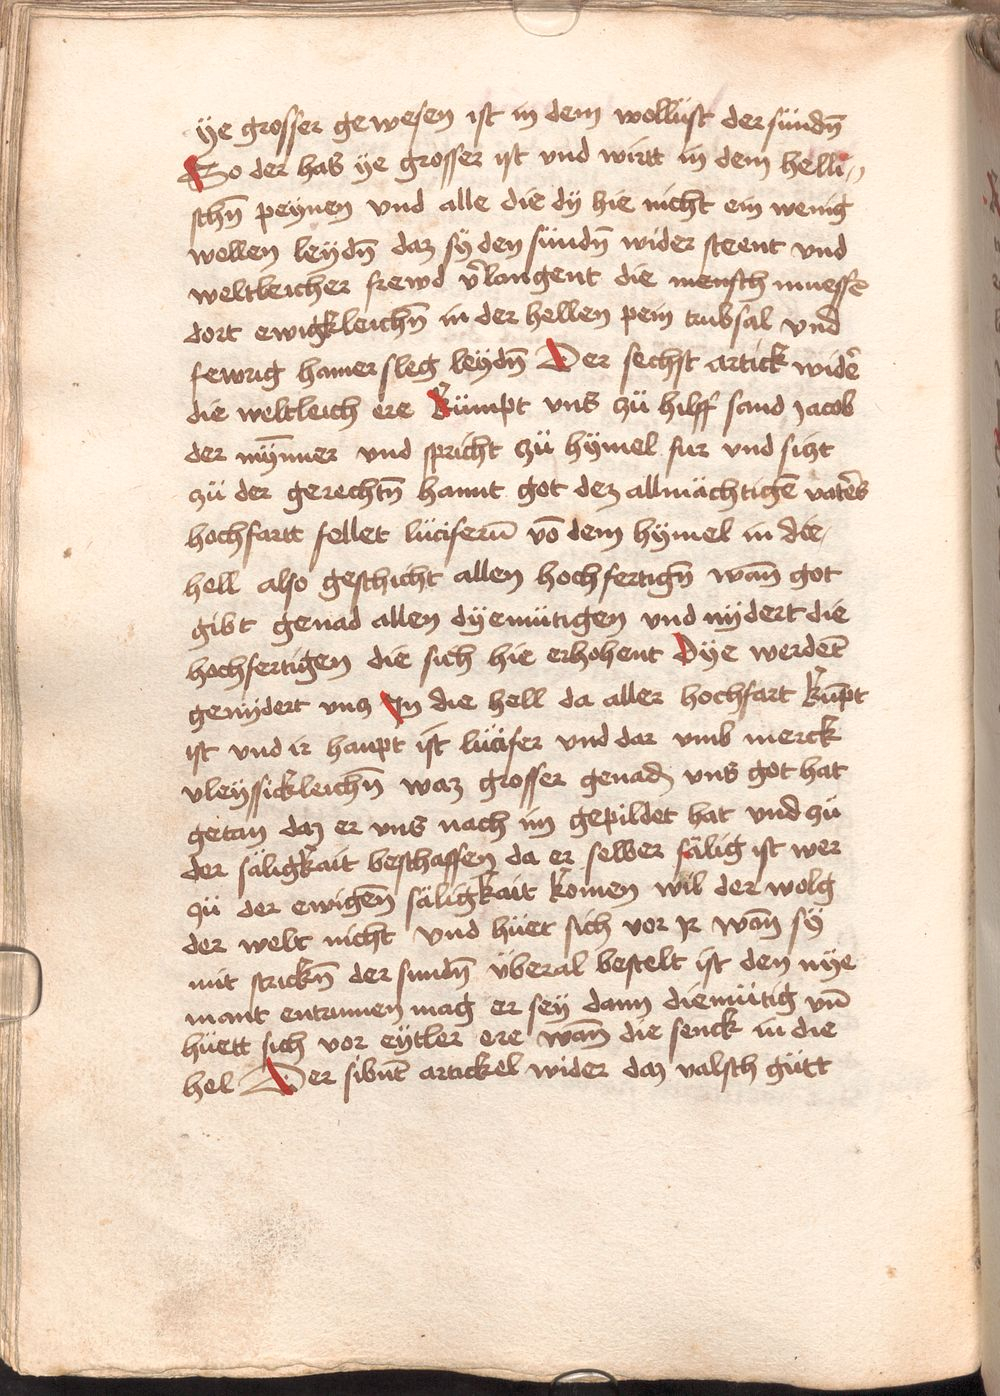 ÿe grosser gewesen ist in dem wollust der sündn̄
So der has ye grosser ist vnd wirtt in dem helli-
schn̄ peynen vnd alle die dÿ hie nicht ein wenig
wellen leydn̄ daz sÿ den sündn̄ wider steent vnd
weltleicher frewd v̄langent die mensch muesse
dort ewigkleichn̄ in der hellen pein trubsal vnd
fewrig hamer sleg leydn̄ Der sechst artick widē
die weltleich ere Kümpt vns zü hilff sand Jacob
der myn̄ner vnd spricht zü hÿmel fur vnd sitzt
zü der gerechtn̄ hannt got dez allmächtigē vatēs
hochfartt fellet lüciferū vō dem hÿmel in die
hell also geschicht allen hochfertign̄ wan̄ got
gibt genad allen dÿemütigen vnd nÿdert die
hochfertigen die sich hie erhohent Dÿe werdēt
genÿdert vns In die hell da aller hochfart kūpt
ist vnd ir haupt ist lücifer vnd dar vmb merck
vleyssickleichn̄ waz grosser genad vns got hat
getan daz er vns nach im gepildet hat vnd zü
der säligkait beschaffen da er selber sälig ist wer
zü der ewigen̄ säligkait komen wil der volg
der welt nicht vnd hüet sich vor Ir wan̄ sÿ
mit strickn̄ der sundn̄ überal bestelt ist den nÿe
mant entrinnen mag er seÿ dann diemütig vn̄
hüett sich vor eytler ere wan̄ die senck in die
hel Der sibnt̄ artickel wider daz valsch gütt